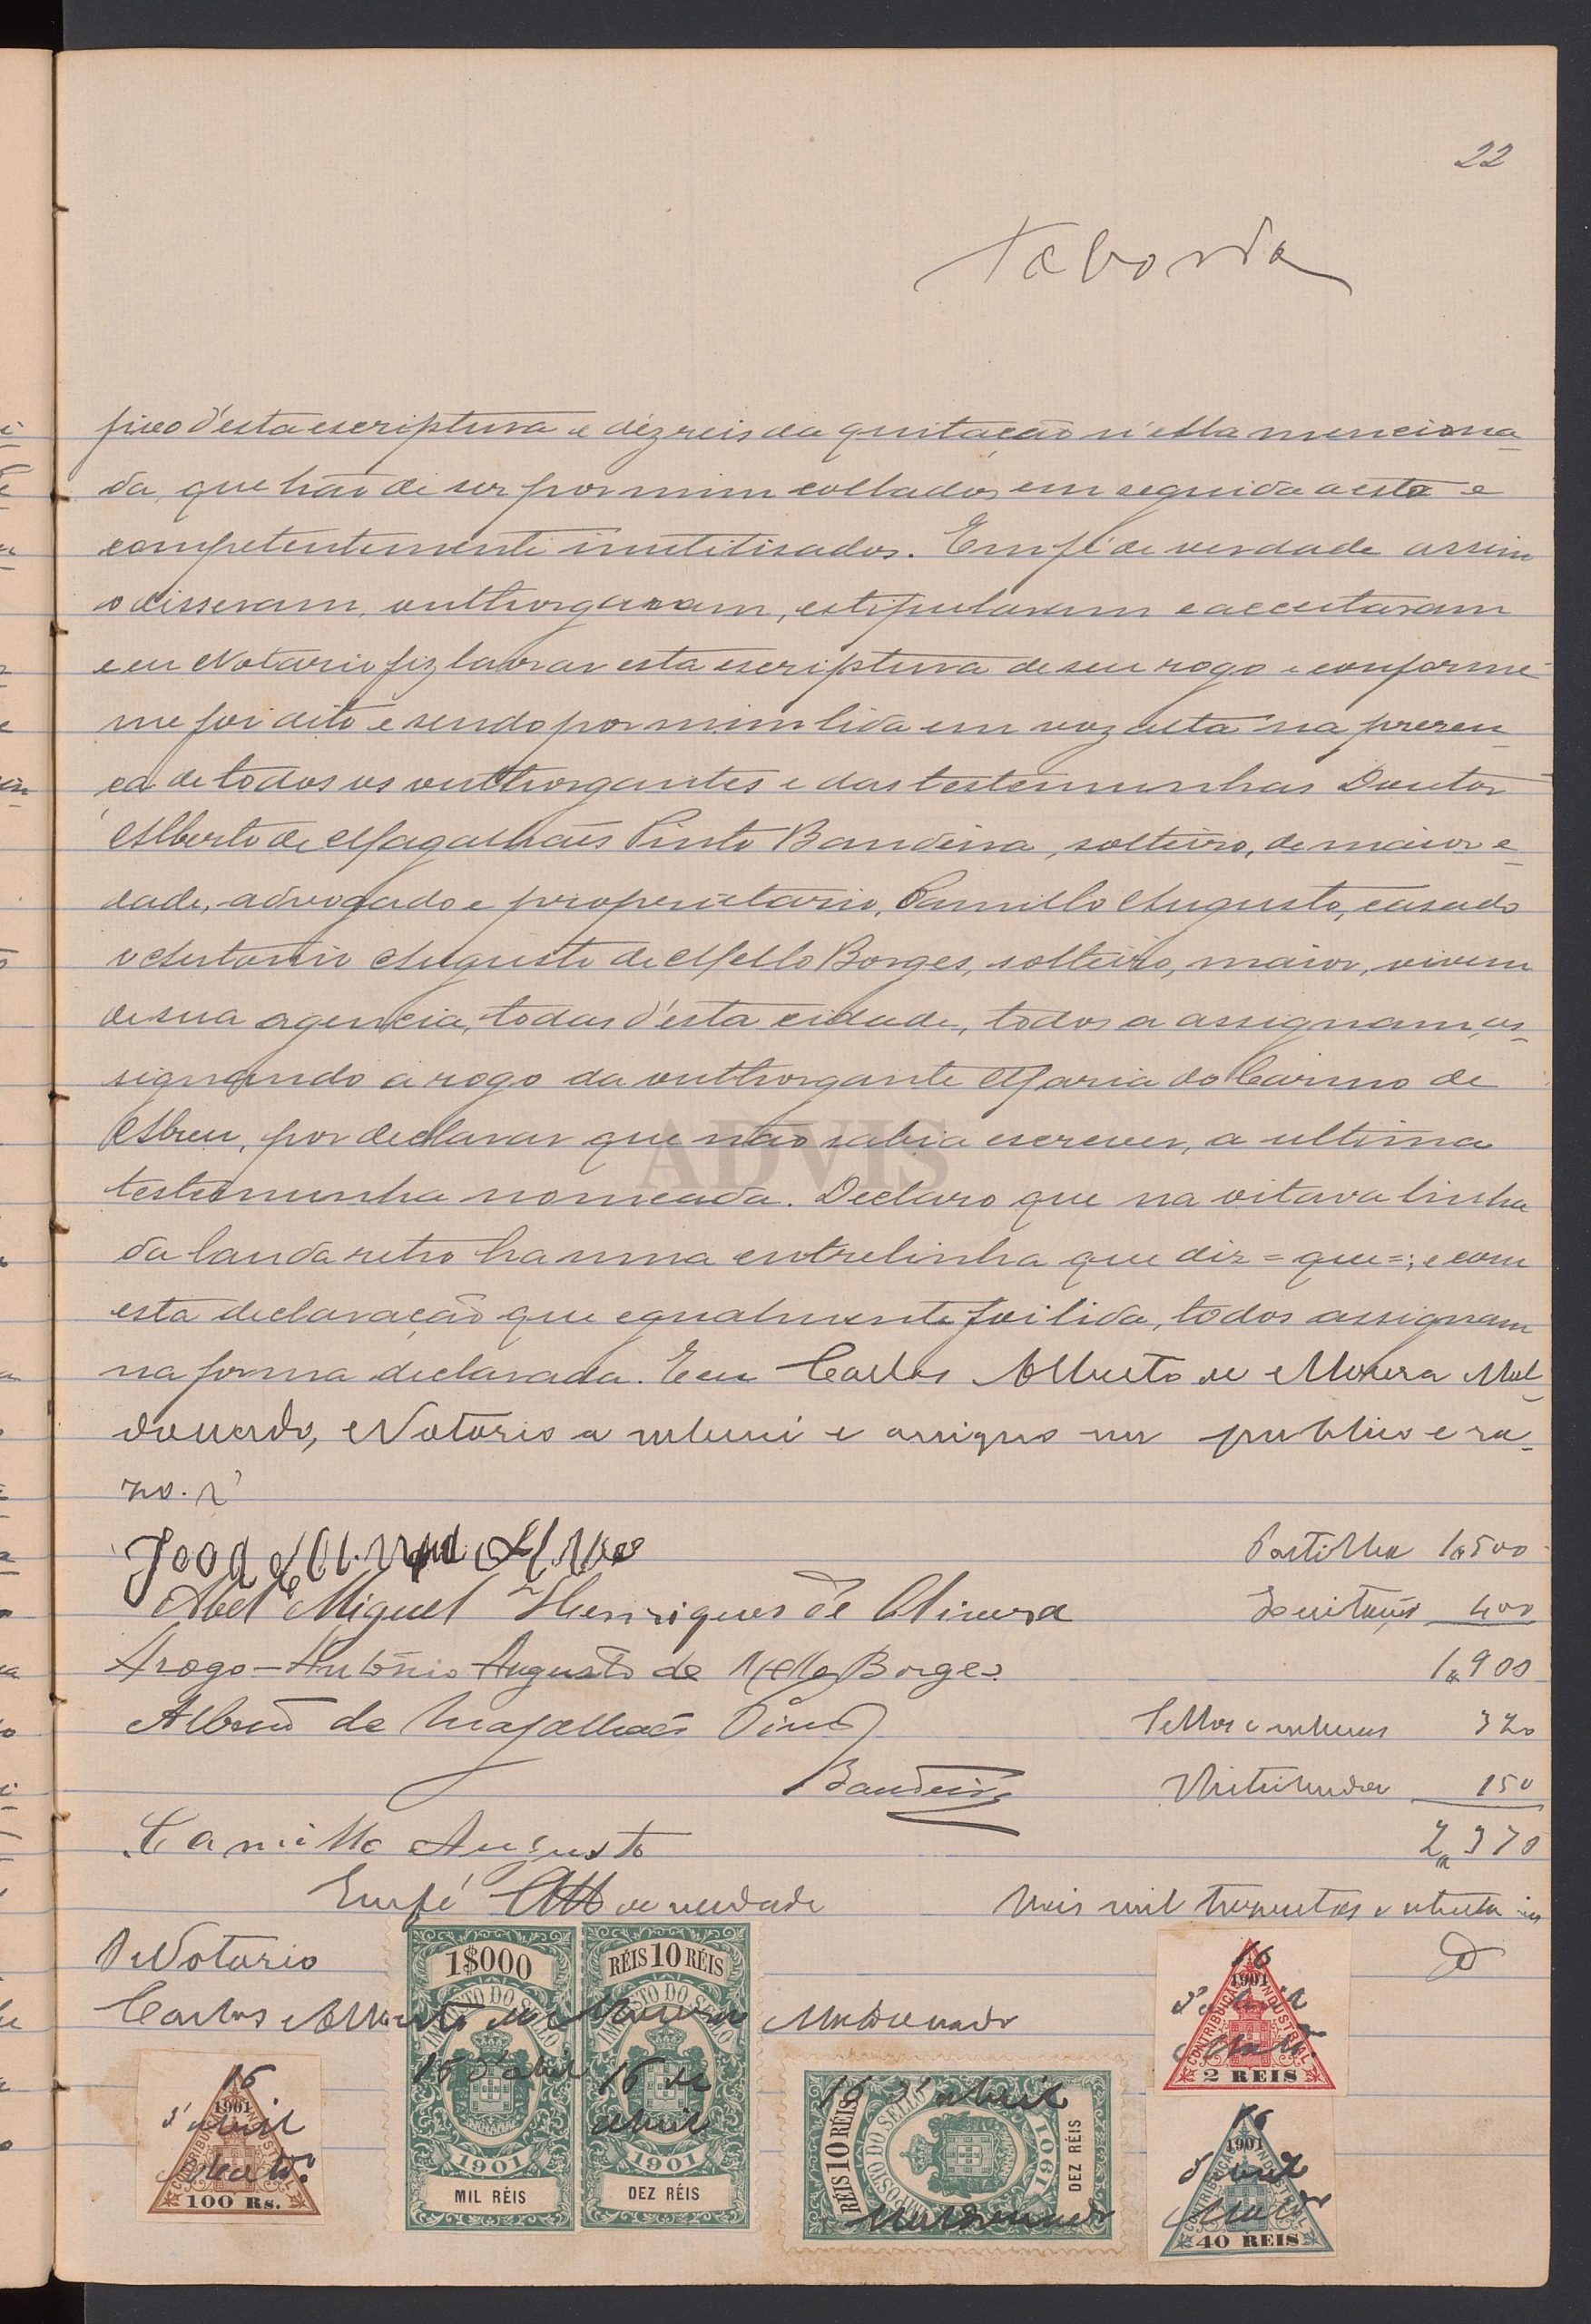 22
Taborda
fixo d'esta escriptura e déz reis da quitação n'ella menciona-
da, que hão de ser por mim collados em seguida a esta e
competentemente inutilisados. Em fé de verdade assim
o disseram, outhorgaram, estipularam e acceitaram
e eu Notario fiz lavrar esta escriptura de seu rogo e conforme
me foi dito e sendo por mim lida em voz alta na presen-
ça de todos os outhorgantes e das testemunhas Doutor
Alberto de Magalhães Pinto Bandeira, solteiro, de maior e-
dade, advogado e proprietario, Camillo Augusto, casado
e Antonio Augusto de Mello Borges, solteiro, maior, vivem
de sua agencia, todas d'esta cidade, todos a assignam, as-
signando a rogo da outhorgante Maria do Carmo de
Abreu, por declarar que não sabia escrever, a ultima
testemunha nomeada. Declaro que na oitava linha
da lauda retro ha uma entrelinha que diz = que =; e com
esta declaração que egualmente foi lida, todos assignam
na forma declarada. E eu Carlos Alberto de Moura Mal-
donado, Notario a subscrevi e assigno em publico e ra-
zo.
Abel Miguel Henriques de Oliveira
Arogo - António Augusto de Mello Borges
Alberto de Magalhães Pinto
Bandeira
Camillo Augusto
Partilha 1$500
Quitação 400
1$900
Sellos e 320
150
2$370
Em fé de verdade
O Notario
Carlos Alberto de Moura Maldonado
mil trezentos e
1$000
IMPOSTO DO SELLO
15 d'abril
1901
MIL RÉIS
RÉIS 10 RÉIS
IMPOSTO DO SELLO
15 de
abril
1901
DEZ RÉIS
15 d'abril
RÉIS 10 RÉIS
IMPOSTO DO SELLO
1901
DEZ RÉIS
Maldonado
15
1901
d'abril
CONTRIBUIÇÃO INDUSTRIAL
100 Rs.
15
1901
d'abril
CONTRIBUIÇÃO INDUSTRIAL
2 REIS
15
1901
d'abril
CONTRIBUIÇÃO INDUSTRIAL
40 REIS
ADVIS